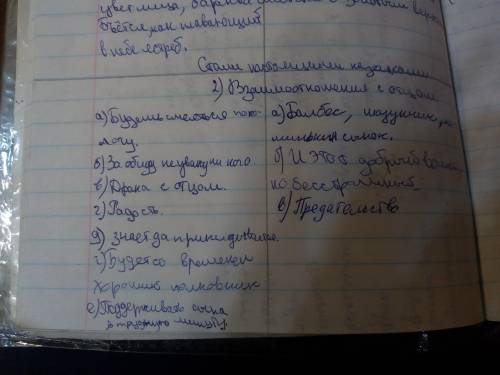 цвет лица,
бьётся, как плавающий
в небе ястреб.
Стали настоящими казаками
2) Взаимоотношения с отцом
а) Будешь смеяться поко-
лочу.
б) За обиду не уважу никого.
в) Драка с отцом.
г) Радость.
д) знает да прикидывался
г) Будет со временем
хороший полковник
е) Поддерживать сына
в трудную минуту
а) Балбес, мазунчик,
сынок.
б) И этот добрый
но бесстрашный
в) Предательство